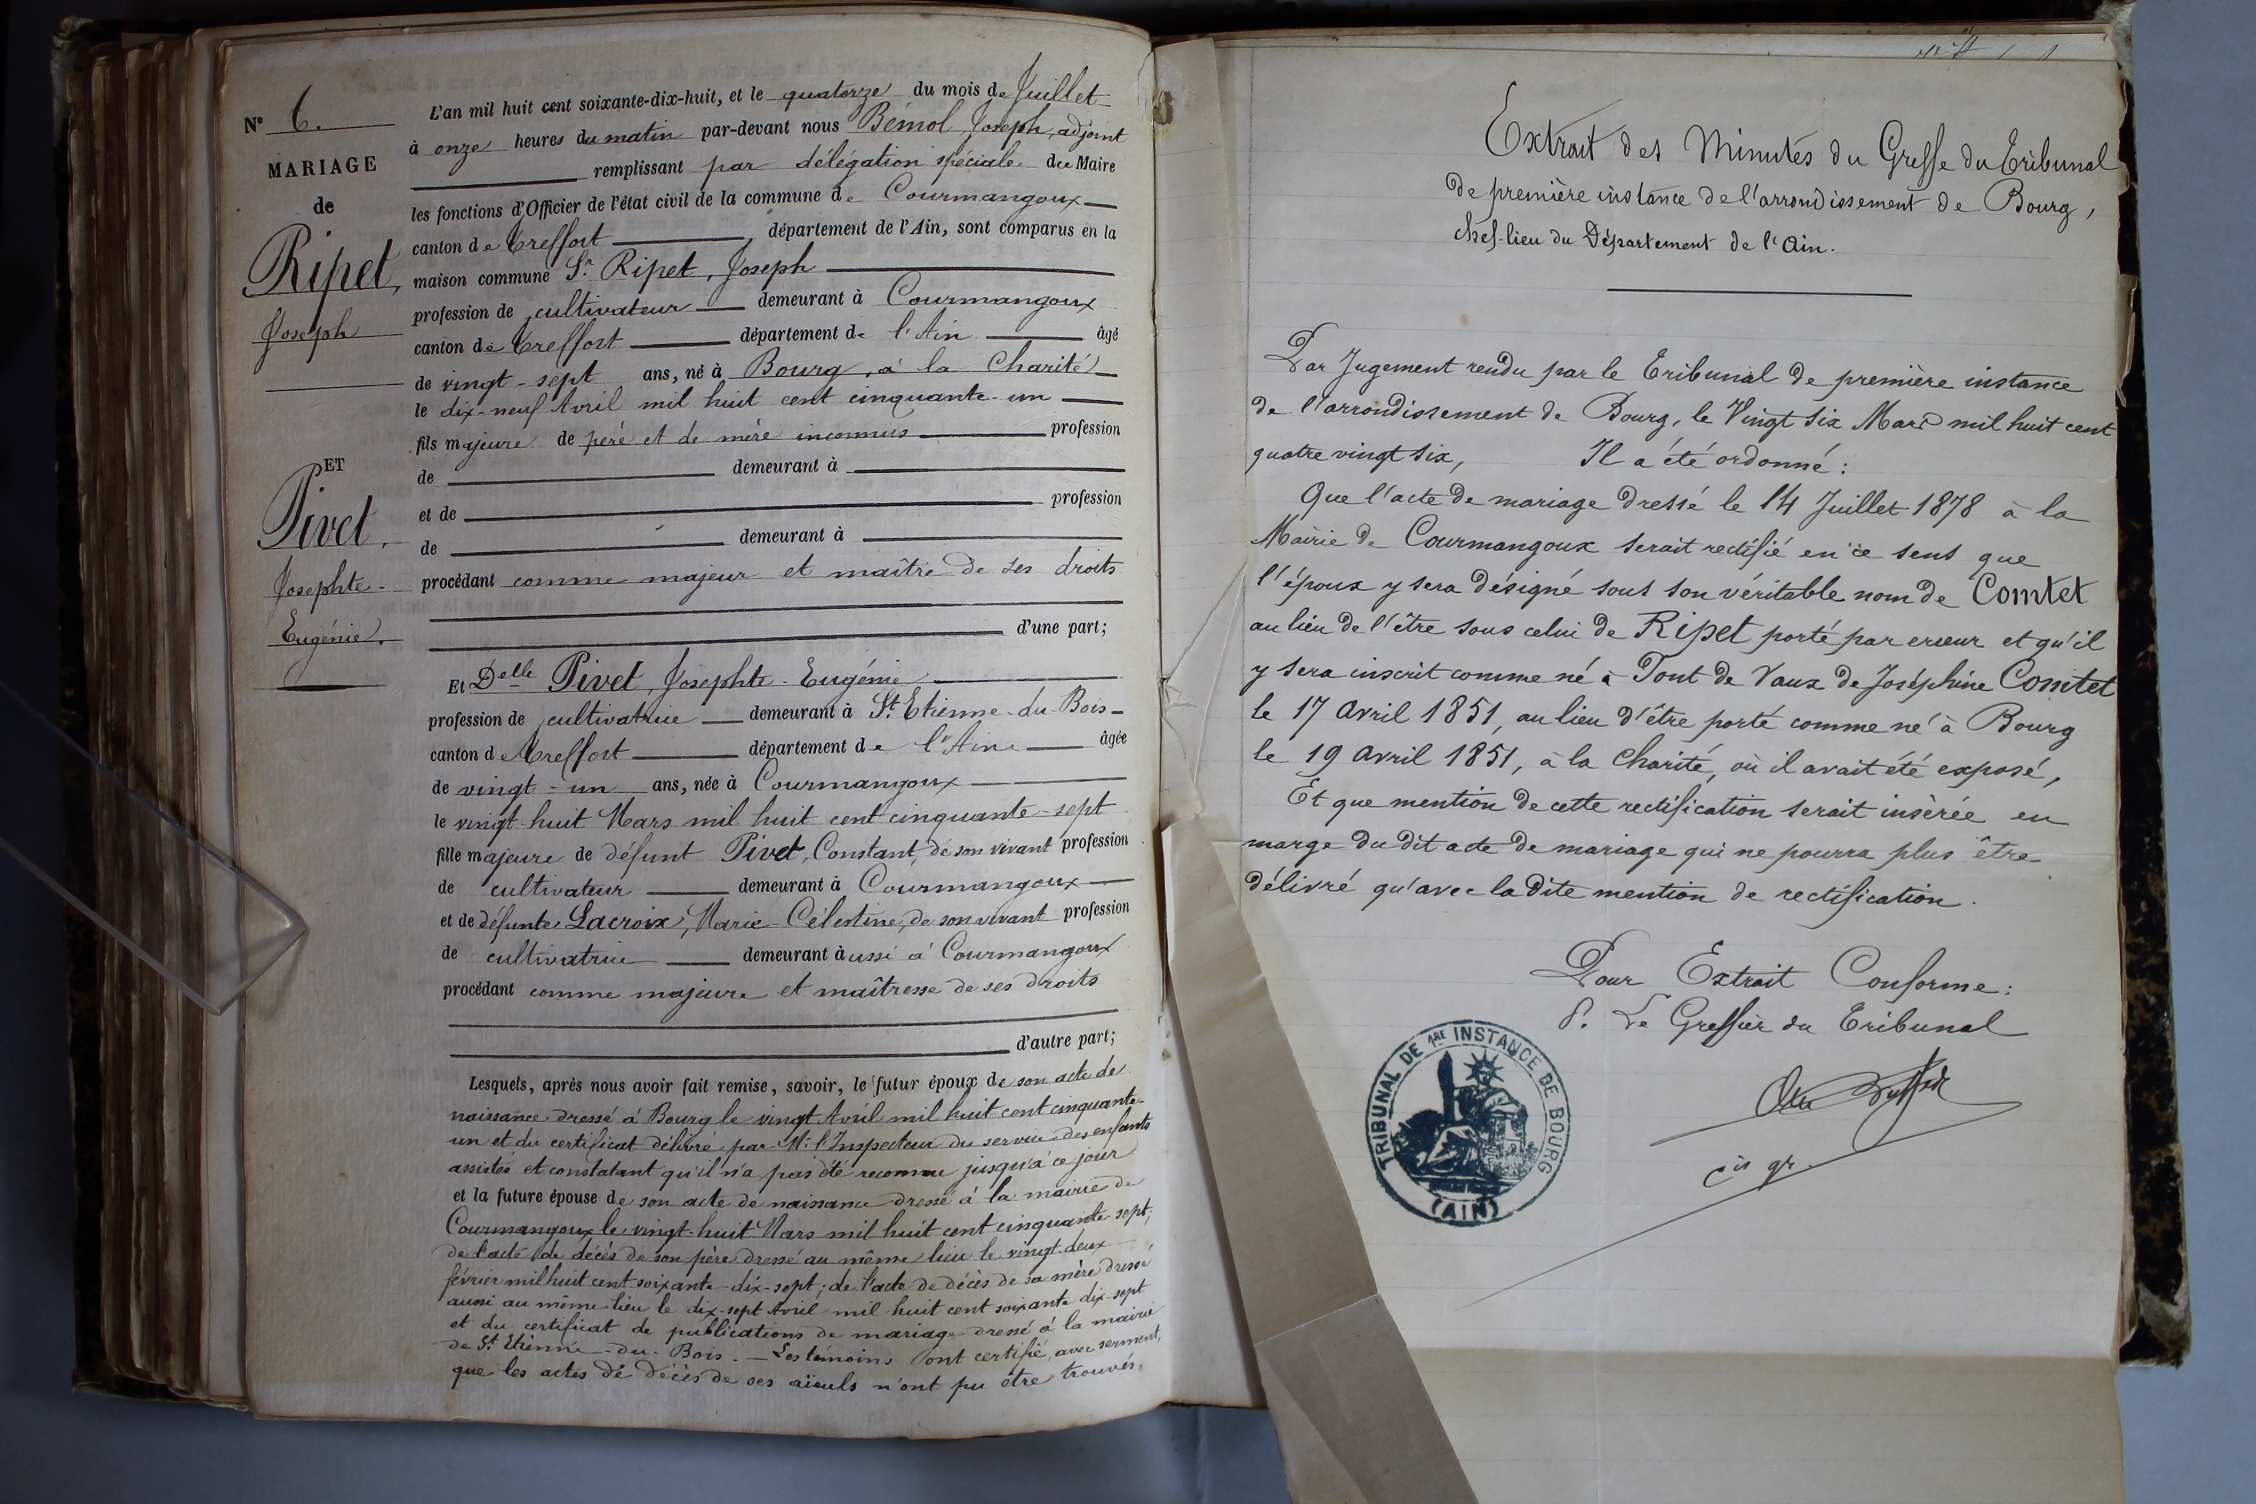 N° 6.
MARIAGE
de
Ripet,
Joseph
ET
Pivet,
Josephte-
Eugénie.
L'an mil huit cent soixante-dix-huit, et le quatorze du mois de Juillet
à onze heures du matin par-devant nous Bémol Joseph, adjoint
remplissant par délégation spéciale du Maire
les fonctions d'Officier de l'état civil de la commune de Courmangoux
canton de Treffort département de l'Ain, sont comparus en la
maison commune Sr. Ripet, Joseph
profession de cultivateur demeurant à Courmangoux
canton de Treffort département de l'Ain âgé
de vingt-sept ans, né à Bourg, à la Charité
le dix-neuf Avril mil huit cent cinquante-un
fils majeure de père et de mère inconnus profession
de demeurant à
et de profession
de demeurant à
procédant comme majeur et maître de ses droits
d'une part;
Et Delle Pivet, Josephte-Eugénie
profession de cultivatrice demeurant à St. Etienne-du-Bois
canton de Treffort département de l'Ain âgée
de vingt-un ans, née à Courmangoux
le vingt-huit Mars mil huit cent cinquante-sept
fille majeure de défunt Pivet, Constant, de son vivant profession
de cultivateur demeurant à Courmangoux
et de défunte Lacroix, Marie-Célestine, de son vivant profession
de cultivatrice demeurant aussi à Courmangoux
procédant comme majeure et maîtresse de ses droits
d'autre part;
Lesquels, après nous avoir fait remise, savoir, le futur époux de son acte de
naissance dressé à Bourg le vingt Avril mil huit cent cinquante-
un et du certificat délivré par Mr. l'Inspecteur du service des enfants
assistés et constatant qu'il n'a pas été reconnu jusqu'à ce jour
et la future épouse de son acte de naissance dressé à la mairie de
Courmangoux le vingt-huit Mars mil huit cent cinquante-sept;
de l'acte de décès de son père dressé au même lieu le vingt-deux
février mil huit cent soixante-dix-sept; de l'acte de décès de sa mère dressé
aussi au même lieu le dix-sept Avril mil huit cent soixante dix-sept
et du certificat de publications de mariage dressé à la mairie
de St. Etienne-du-Bois. — Les témoins ont certifié, avec serment,
que les actes de décès de ses aïeuls n'ont pu être trouvés.
Extrait des Minutes du Greffe du Tribunal
de première instance de l'arrondissement de Bourg,
chef-lieu du Département de l'Ain.
Par Jugement rendu par le Tribunal de première instance
de l'arrondissement de Bourg, le Vingt six Mars mil huit cent
quatre vingt six, Il a été ordonné :
Que l'acte de mariage dressé le 14 Juillet 1878 à la
Mairie de Courmangoux serait rectifié en ce sens que
l'époux y sera désigné sous son véritable nom de Comtet
au lieu de l'être sous celui de Ripet porté par erreur et qu'il
y sera inscrit comme né à Pont de Vaux de Joséphine Comtet
le 17 avril 1851, au lieu d'être porté comme né à Bourg
le 19 avril 1851, à la Charité, où il avait été exposé,
Et que mention de cette rectification serait insérée en
marge du dit acte de mariage qui ne pourra plus être
délivré qu'avec la dite mention de rectification.
Pour Extrait Conforme :
P. Le Greffier du Tribunal
cis gr.
TRIBUNAL DE 1RE INSTANCE DE BOURG
(AIN)